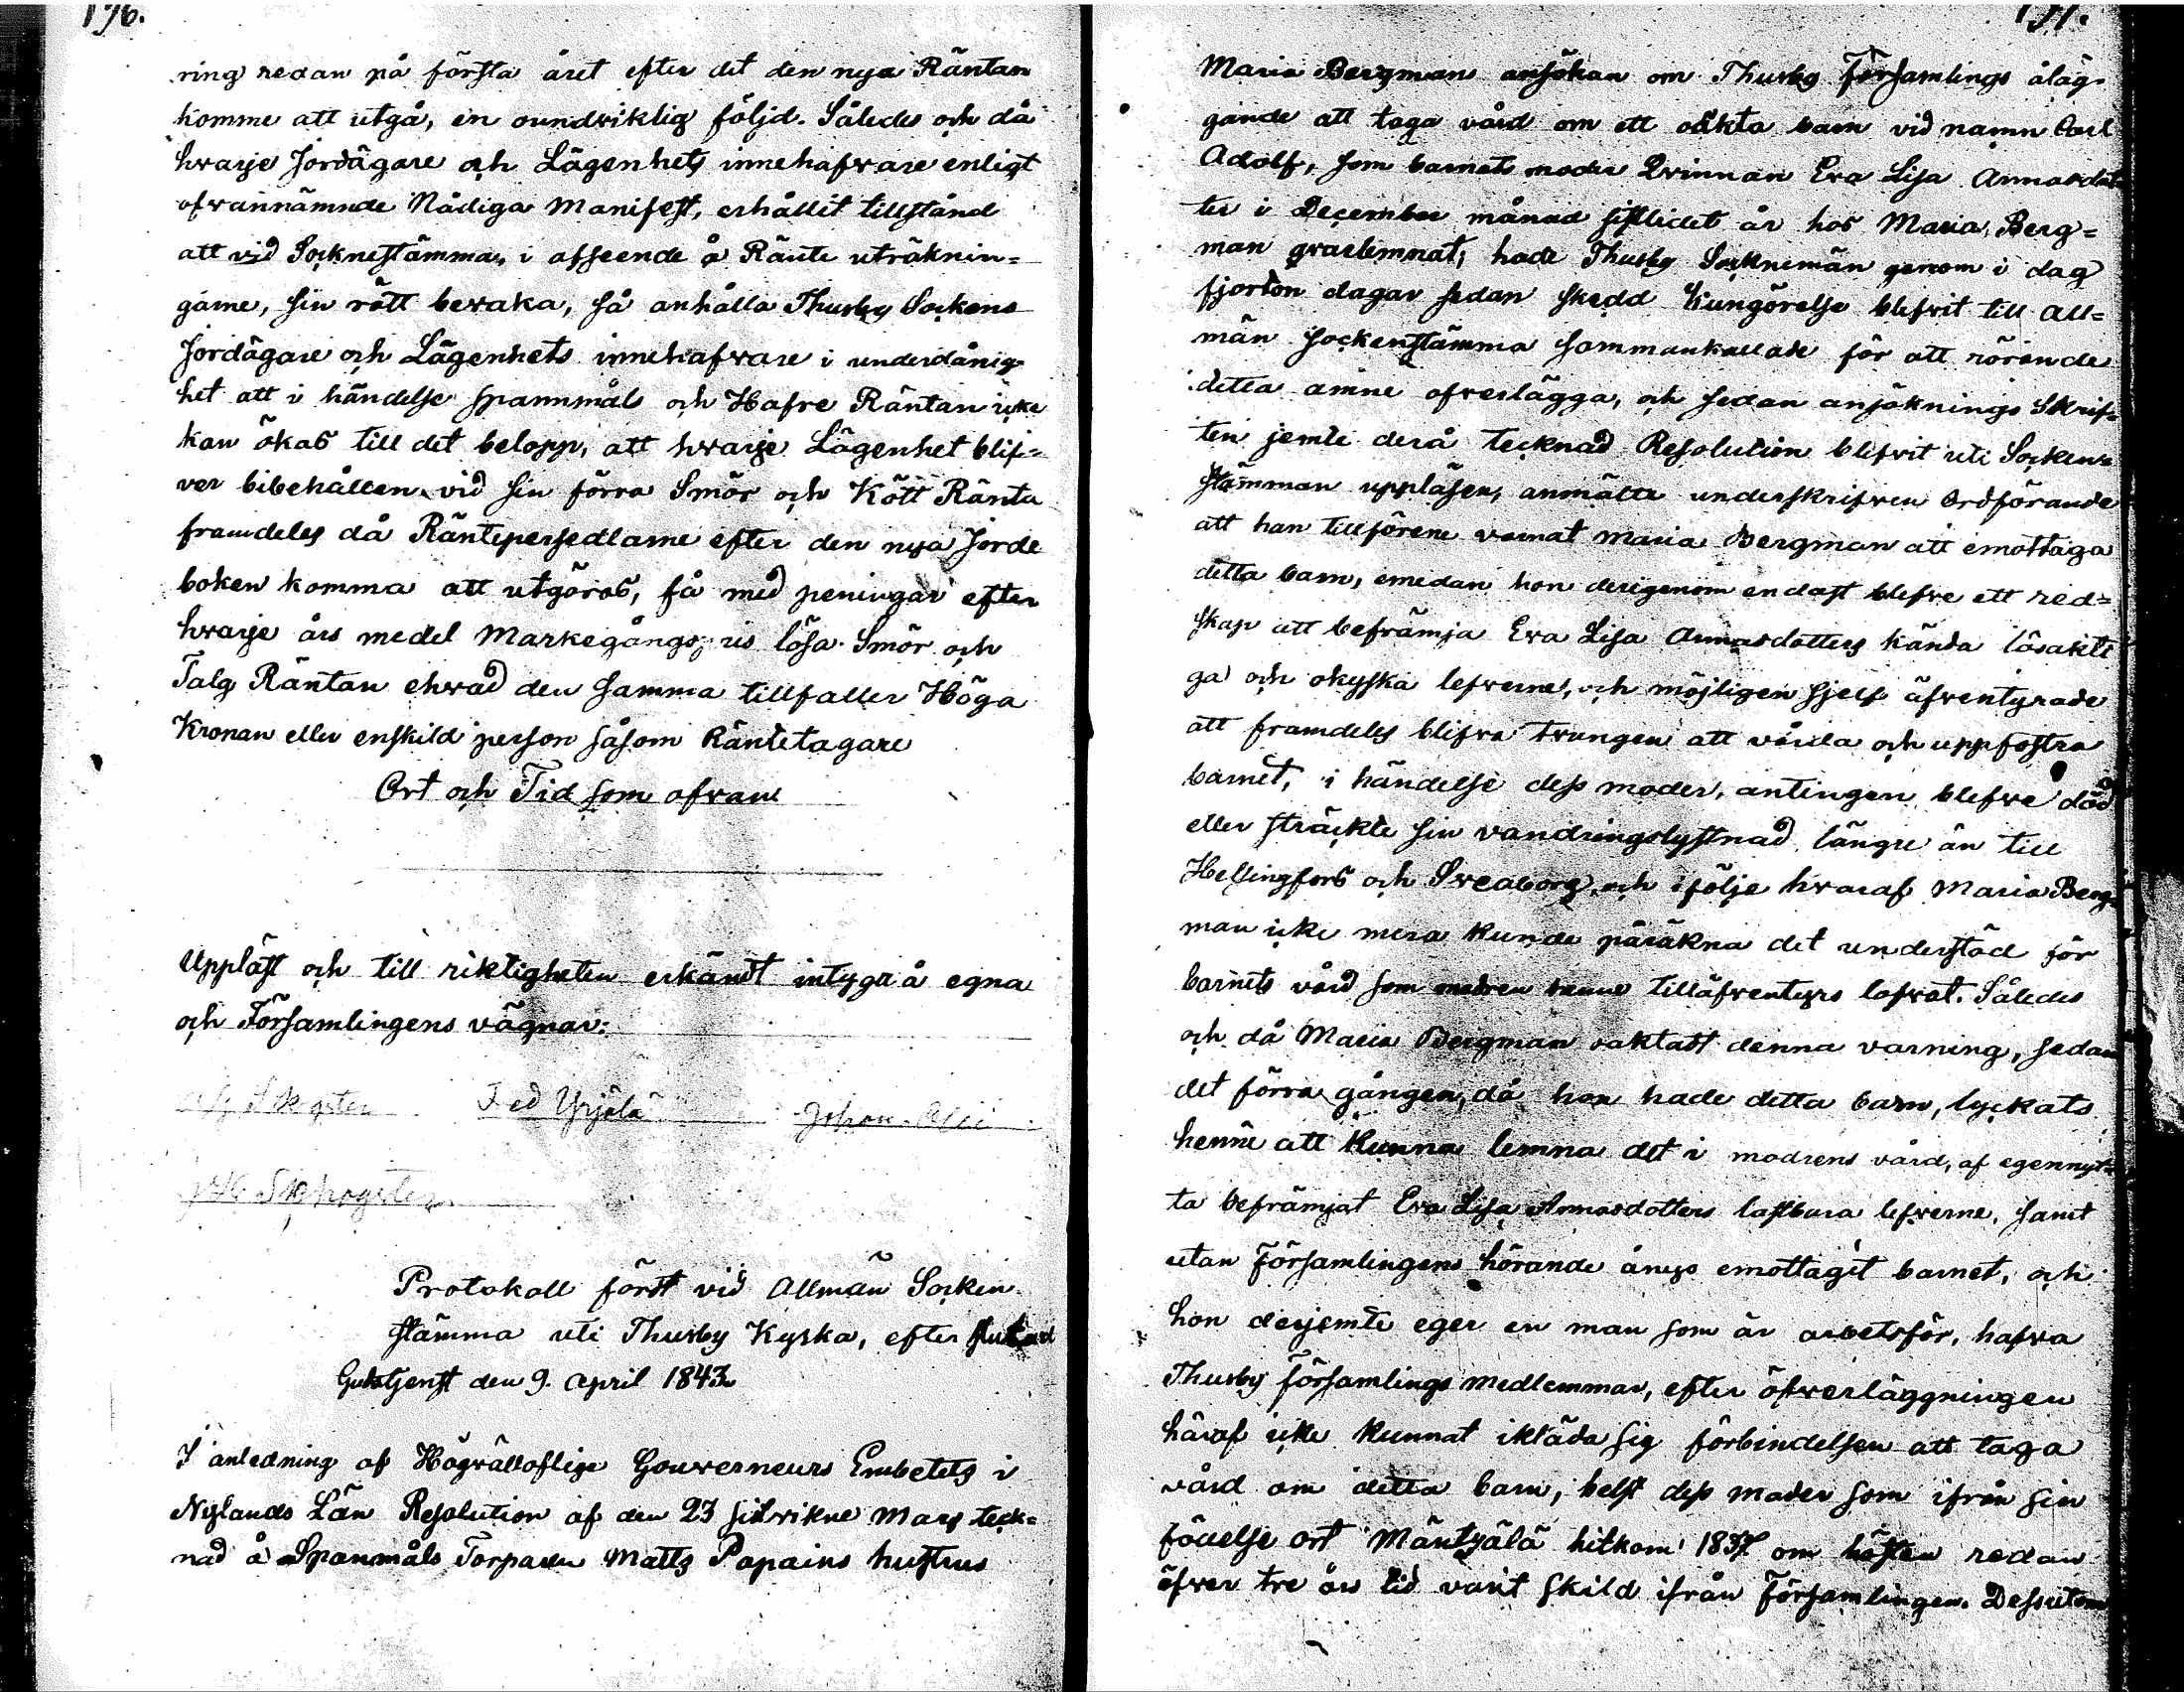 196.
ring redan på första året efter det den nya Räntan
komme att utgå, en oundviklig följd. Således och då
hvarje Jordägare och Lägenhets innehafvare enligt
ofvannämnde Nådiga Manifest, erhållit tillstånd
att vid Socknestämma, i afseende å Ränte uträknin=
garne, sin rätt bevaka, så anhålla Thusby Sockens
Jordägare och Lägenhets innehafvare i underdånig=
het att i händelse spannmåls och Hafre Räntan icke
kan ökas till det belopp, att hvarje Lägenhet blif=
ver bibehållen vid sin förra Smör och Kött Ränta
framdeles då Räntepersedlarne efter den nya Jorde
boken komma att utgöras, få med peningar efter
hvarje års medel Markegångs pris lösa Smör och
Talg Räntan ehvad den samma tillfaller Höga
Kronan eller enskild person såsom Räntetagare
Ort och Tid som ofvan
Uppläst och till riktigheten erkändt intyga å egna
och Församlingens vägnar:
Yrjälä Johan
Protokoll fördt vid Allmän Socken
stämma uti Thusby Kyrka, efter slutad
Gudstjenst den 9. April 1843
I anledning af Högvälloflige Gouverneurs Embetets i
Nylands Län Resolution af den 23 sidvikne Mars teck=
nad å Spanmåls Torparen Matts Papains hustrus
197.
Maria Bergmans ansökan om Thusby Församlings åläg=
gande att taga vård om ett oäkta barn vid namn Carl
Adolf, som barnets moder Qvinnan Eva Lisa Annasdot=
ter i December månad sistlidet år hos Maria Berg=
man qvarlemnat; hade Thusby Socknemän genom i dag
fjorton dagar sedan skedd Kungörelse blifvit till all=
män sockenstämma sammankallade för att rörande
detta ämne öfverlägga, och sedan ansöknings Skrif=
ten jemte derå tecknad Resolution blifvit uti Socken=
stämman uppläsen, anmälte underskrifven Ordförande
att han tillförene varnat Maria Bergman att emottaga
detta barn, emedan hon derigenom endast blefve ett red=
skap att befrämja Eva Lisa Annasdotters kända lösakti
ga och okyska lefverne, och möjligen sjelf äfventyrade
att framdeles blifva tvungen att vårda och uppfostra
barnet, i händelse dess moder, antingen blefve död
eller sträckte sin vandringslystnad längre än till
Helsingfors och Sveaborg, och i följe hvaraf Maria Berg=
man icke mera kunde påräkna det understöd för
barnets vård som modren henne tilläfventyrs lofvat. Således
och då Maria Bergman oaktadt denna varning, sedan
det förra gången, då hon hade detta barn, lyckats
henne att kunna lemna det i modrens vård, af egennyt=
ta befrämjat Eva Lisa Annasdotters lastbara lefverne, samt
utan Församlingens hörande ånyo emottagit barnet, och
hon derjemte eger en man som är arbetsför, hafva
Thusby Församlings medlemmar, efter öfverläggningen
häraf icke kunnat ikläda sig förbindelsen att taga
vård om detta barn, helst dess moder som ifrån sin
födelse ort Mäntzälä hitkom 1837 om hösten redan
öfver tre års tid varit skild ifrån Församlingen. Dessutom